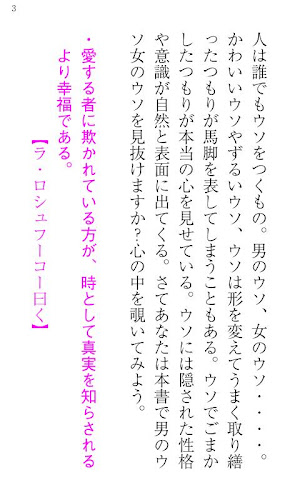 3
人は誰でもウソをつくもの。男のウソ、女のウソ・・・・。
かわいいウソやずるいウソ、ウソは形を変えてうまく取り繕
ったつもりが馬脚を表してしまうこともある。ウソでごまか
したつもりが本当の心を見せている。ウソには隠された性格
や意識が自然と表面に出てくる。さてあなたは本書で男のウ
ソ女のウソを見抜けますか？心の中を覗いてみよう。
・愛する者に欺かれている方が、時として真実を知らされる
より幸福である。
【ラ・ロシュフーコー曰く】